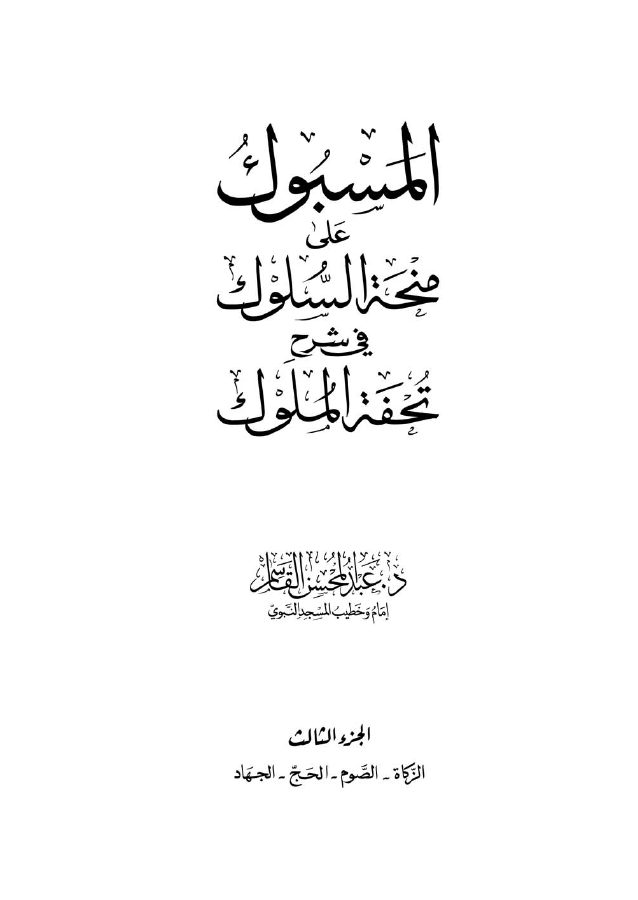 المَسْبُوكُ
عَلَى
مِنْحَةِ السُّلُوكِ
فِي شَرْحِ
تُحْفَةِ المُلُوكِ
د. عَبْدُ المُحْسِنِ القَاسِم
إِمَامُ وَخَطِيبُ المَسْجِدِ النَّبَوِيّ
الجزء الثالث
الزَّكَاة - الصَّوم - الحَجّ - الجهَاد